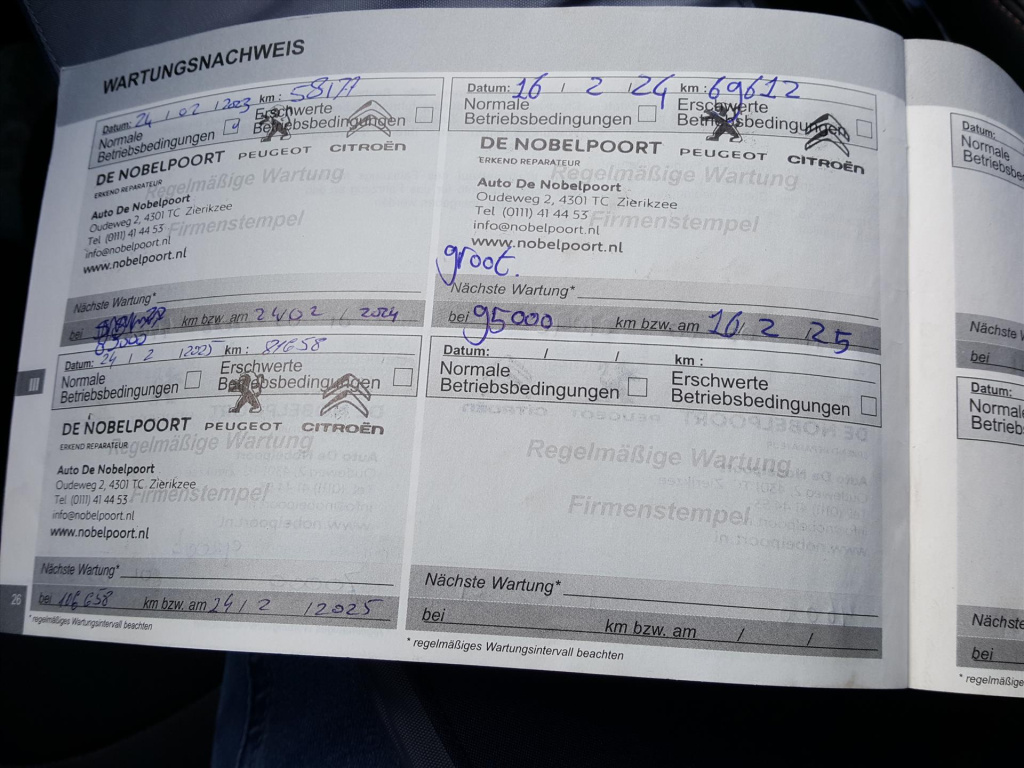 WARTUNGSNACHWEIS
Datum: 24 / 02 / 2023 km : 58177
Normale Betriebsbedingungen
Erschwerte Betriebsbedingungen
DE NOBELPOORT PEUGEOT CITROËN
ERKEND REPARATEUR
Regelmäßige Wartung
Auto De Nobelpoort
Oudeweg 2, 4301 TC Zierikzee
Firmenstempel
Tel. (0111) 41 44 53
info@nobelpoort.nl
www.nobelpoort.nl
Nächste Wartung*
bei km bzw. am 24/02 / 2024
83000
Datum: 16 / 2 / 24 km : 69612
Normale Betriebsbedingungen
Erschwerte Betriebsbedingungen
DE NOBELPOORT PEUGEOT CITROËN
ERKEND REPARATEUR
Regelmäßige Wartung
Auto De Nobelpoort
Oudeweg 2, 4301 TC Zierikzee
Firmenstempel
Tel. (0111) 41 44 53
info@nobelpoort.nl
www.nobelpoort.nl
groot.
Nächste Wartung*
bei 95000 km bzw. am 16 / 2 / 25
Datum: 24 / 2 / 2025 km : 81658
Normale Betriebsbedingungen
Erschwerte Betriebsbedingungen
DE NOBELPOORT PEUGEOT CITROËN
ERKEND REPARATEUR
Regelmäßige Wartung
Auto De Nobelpoort
Oudeweg 2, 4301 TC Zierikzee
Firmenstempel
Tel. (0111) 41 44 53
info@nobelpoort.nl
www.nobelpoort.nl
Nächste Wartung*
bei 106658 km bzw. am 24 / 2 / 2025
* regelmäßiges Wartungsintervall beachten
Datum: / / km :
Normale Betriebsbedingungen
Erschwerte Betriebsbedingungen
Regelmäßige Wartung
Firmenstempel
Nächste Wartung*
bei km bzw. am / /
* regelmäßiges Wartungsintervall beachten
III
26
Datum:
Normale
Nächste
bei
Datum:
Nächste
bei